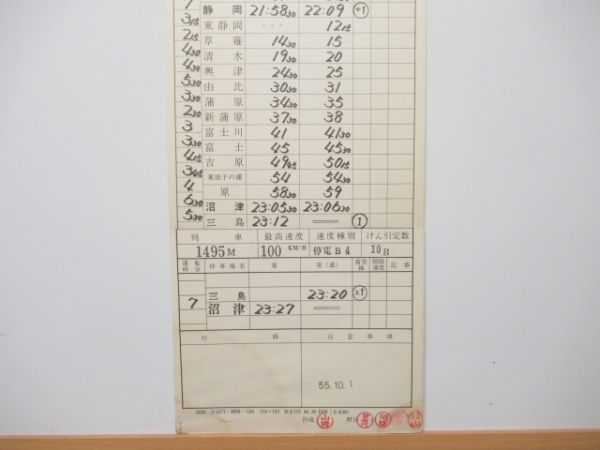 静岡 21:58 30 22:09 ①
3 15 東静岡 ... 12 15
2 15 草薙 14 30 15
4 30 清水 19 30 20
4 30 興津 24 30 25
5 30 由比 30 30 31
3 30 蒲原 34 30 35
2 30 新蒲原 37 30 38
3 富士川 41 41 30
3 30 富士 45 45 30
4 15 吉原 49 45 50 15
3 45 東田子の浦 54 54 30
4 原 58 30 59
6 30 沼津 23:05 30 23:06 30
5 30 三島 23:12 ①
列車 最高速度 速度種別 けん引定数
1495M 100 KM/H 停電B4 10B
運転時分 停車場名 着 発(通) 着発線 制限速度 記事
三島 23:20 上1
7 沼津 23:27
行時 注意事項
55.10.1
作成